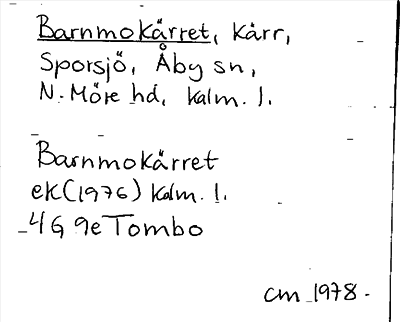 Barnmokärret, kärr,
Sporsjö, Åby sn,
N. Möre hd, Kalm. l.
Barnmokärret
ek (1976) Kalm. l.
4G 9e Tombo
CM 1978.